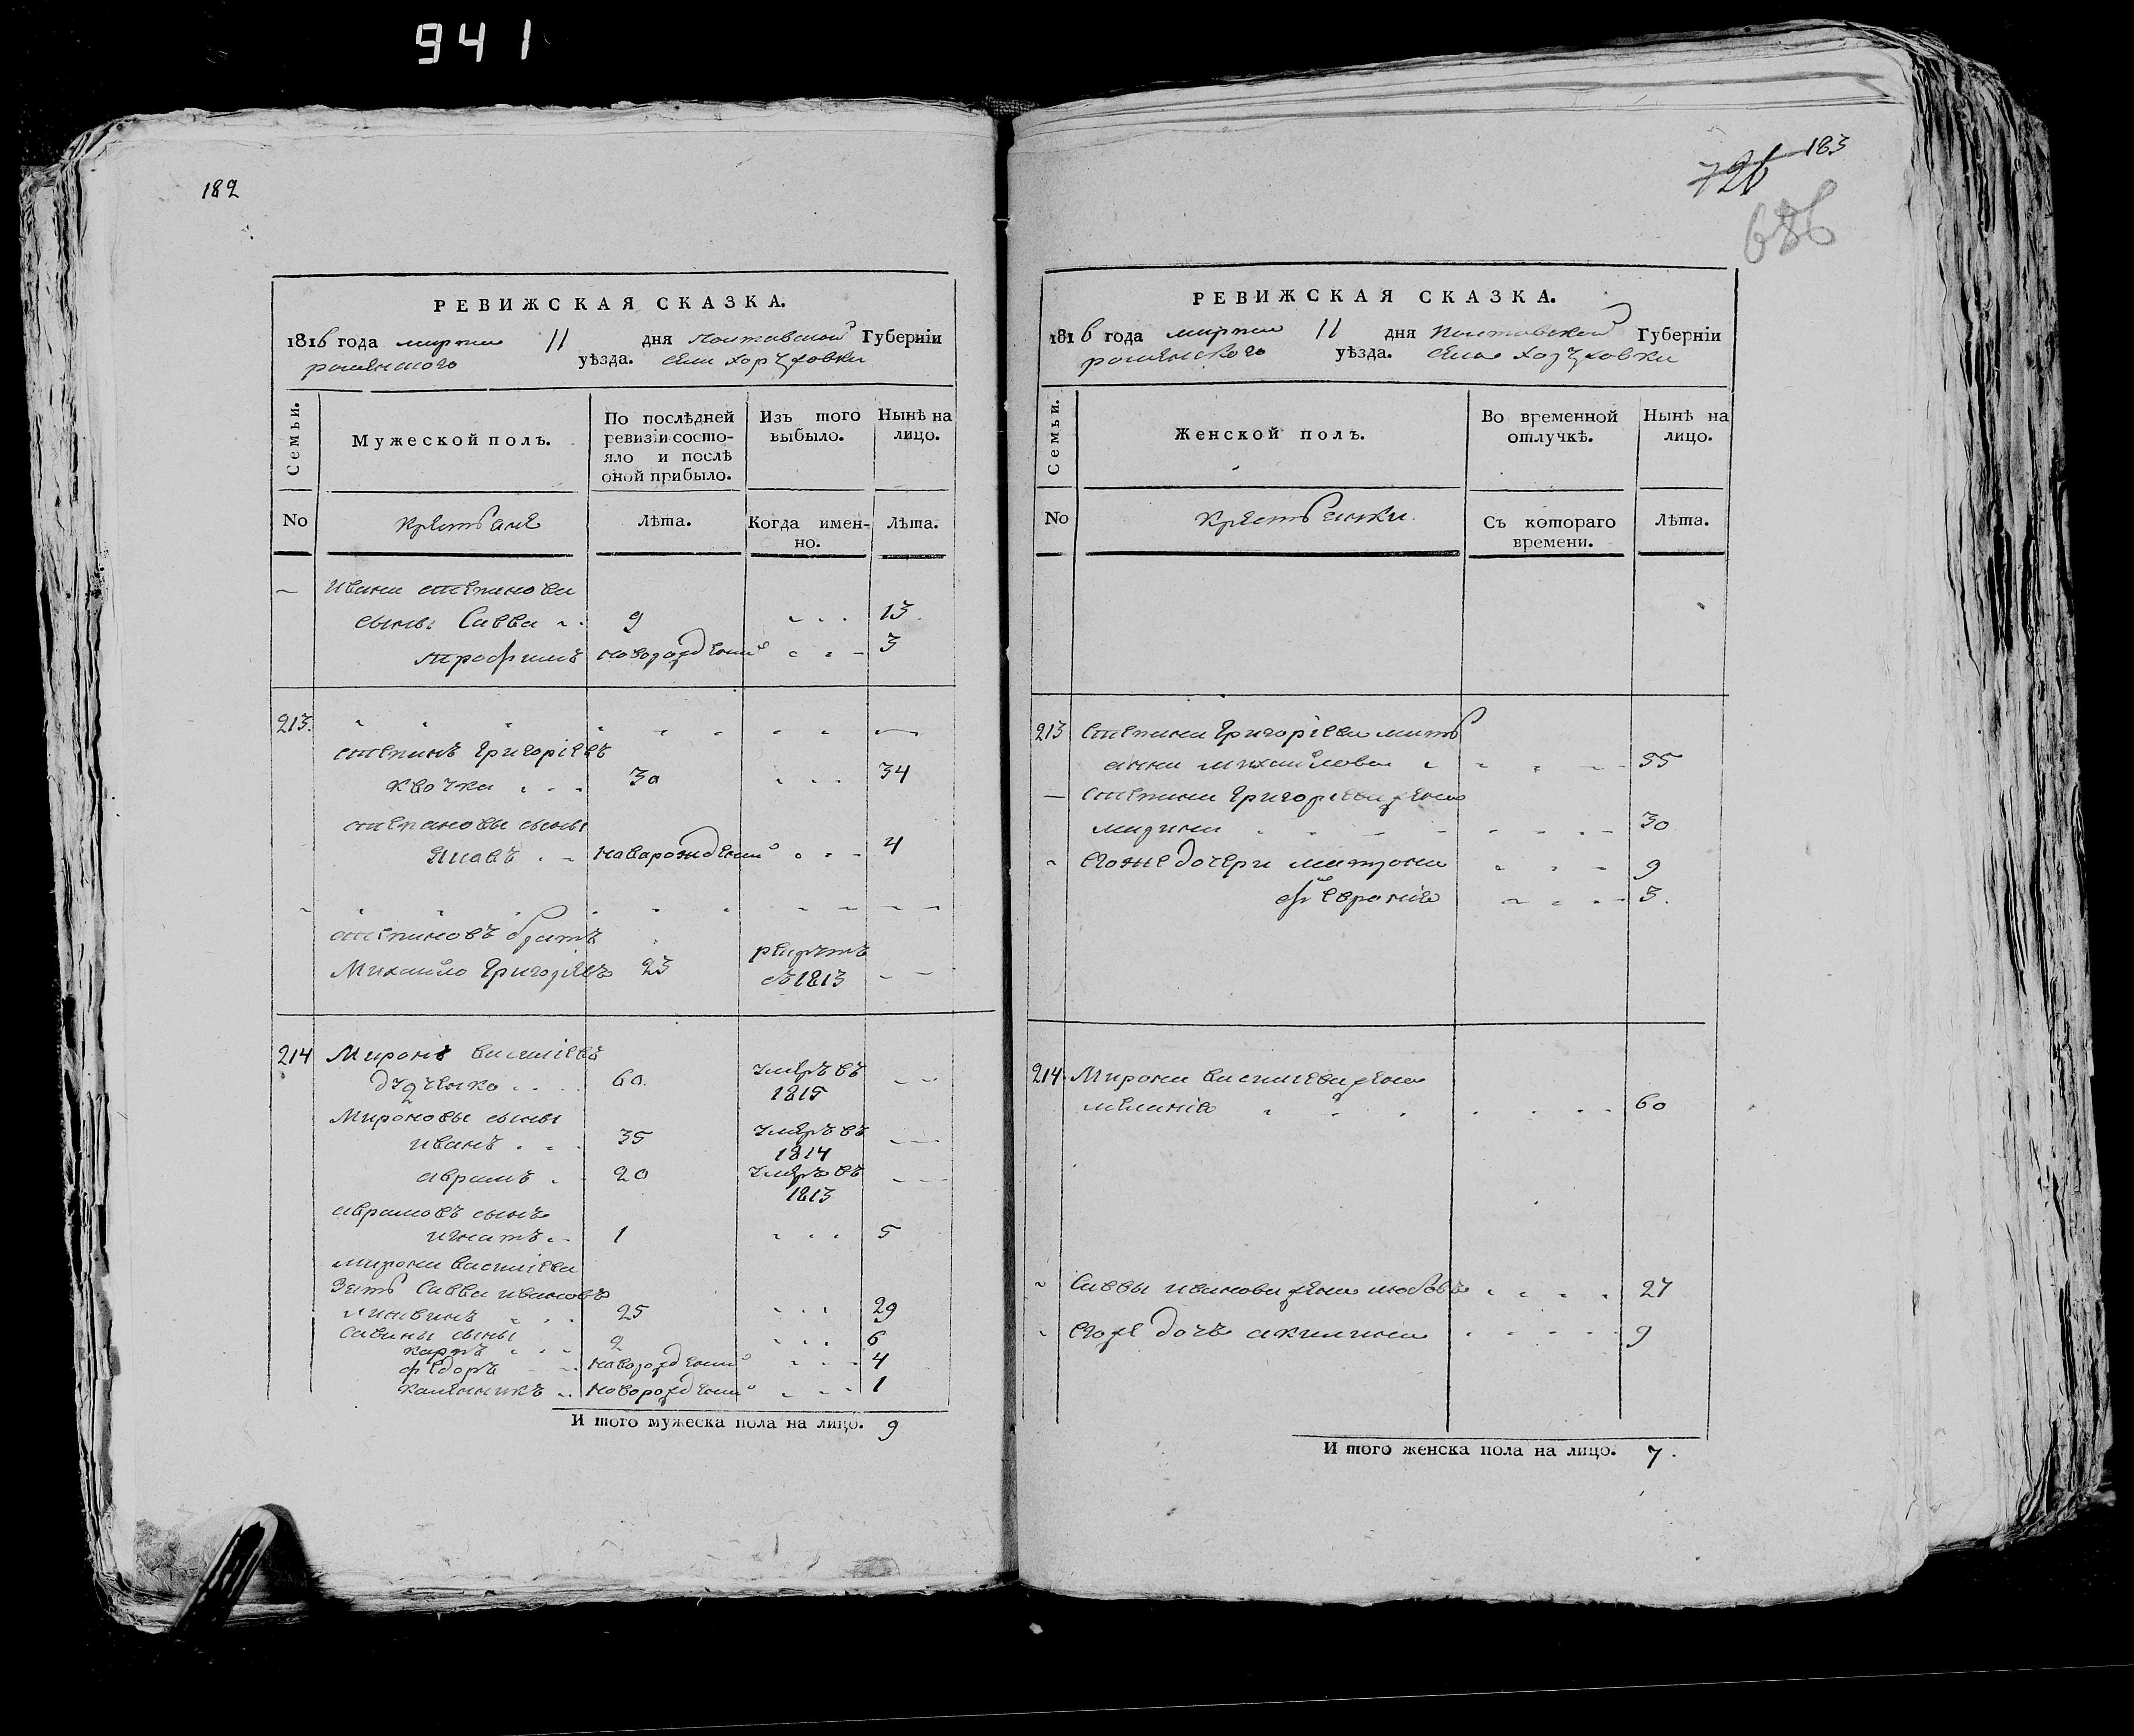 941
182
РЕВИЖСКАЯ СКАЗКА.
1816 года марта 11 дня Полтавской Губерніи
роменского уѣзда. села
Семьи.
Мужеской полъ.
По послѣдней ревизіи состояло и послѣ оной прибыло.
Изъ того выбыло.
Нынѣ на лицо.
No
крестьяне
Лѣта.
Когда имен-
но.
Лѣта.
— Ивана степанова
сыны Савва 9 13
трофимъ новорожденный 3
213.
степанъ григоріевъ
квочка 30 34
степановы сыны
новарожденный 4
степановъ братъ
Михайло григоріевъ 23 рекрутъ въ 1813
214 Миронъ василіевъ
60. умеръ въ 1815
Мироновы сыны
иванъ 35 умеръ въ 1814
аврамъ 20 умеръ въ 1813
аврамовъ сынъ
игнатъ 1 5
мирона василіева
зять Савва ивановъ
литвинъ 25 29
савины сыны
карпъ 2 6
федоръ новорожденный 4
новорожденный 1
И того мужеска пола на лицо. 9
183
726
686
РЕВИЖСКАЯ СКАЗКА.
1816 года марта 11 дня Полтавской Губерніи
роменского уѣзда. села
Семьи.
Женской полъ.
Во временной отлучкѣ.
Нынѣ на лицо.
No
крестьянки.
Съ котораго
времени.
Лѣта.
213 степана григоріева мать
анна михайлова 55
— степана григоріева жена
марина 30
его же дочери матрона 9
февронія 3.
214. Мирона василіева жена
меланія 60
Саввы иванова жена любовъ 27
его же дочь акилина 9
И того женска пола на лицо. 7.